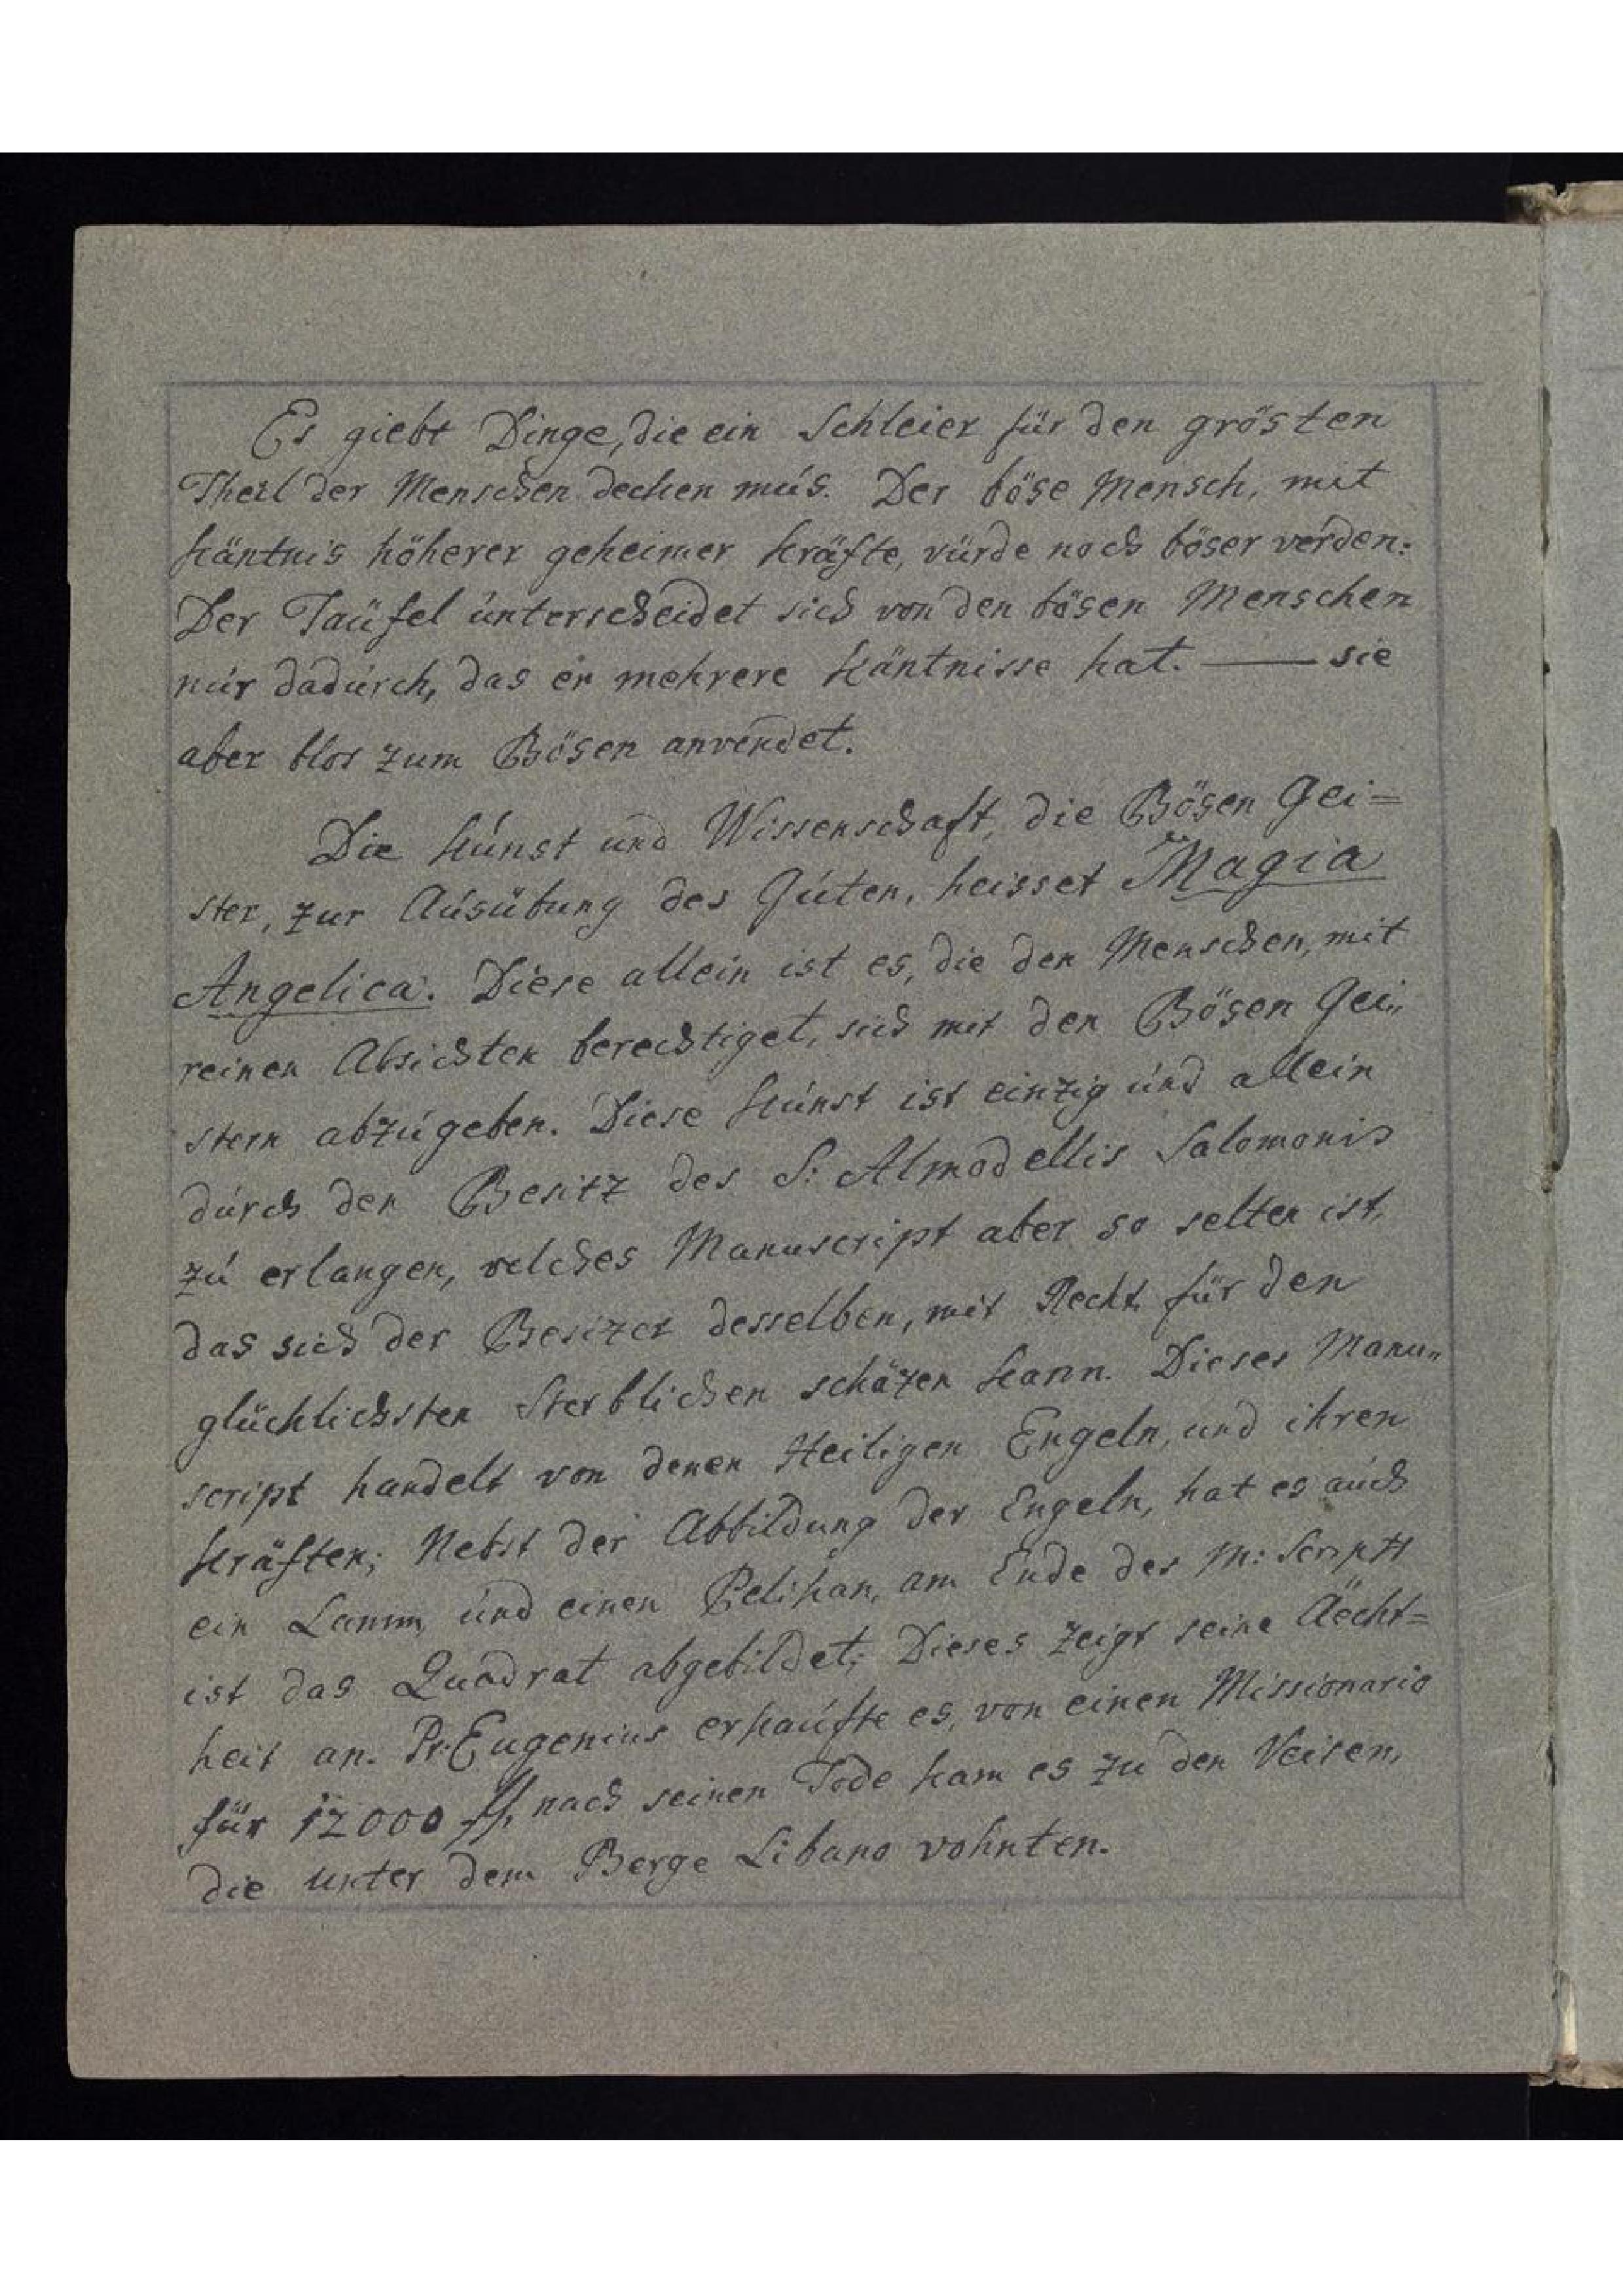 Es giebt Dinge, die ein Schleier für den grösten
Theil der Menschen decken mús. Der böse Mensch, mit
Käntnis höherer geheimer Kräfte, vürde noch böser verden:
Der Taüfel únterscheidet sich von den bösen Menschen
núr dadúrch, das er mehrere Käntnisse hat. — sie
aber blos zum Bösen anvendet.
Die Kúnst und Wissenschaft, die Bösen Gei=
ster, zur Aúsübung des Gúten, heisset Magia
Angelica. Diese allein ist es, die den Menschen, mit
reinen Absichten berechtiget, sich mit den Bösen Gei„
stern abzúgeben. Diese Kúnst ist einzig únd allein
dúrch den Besitz des S: Almodellis Salomonis
zú erlangen, velches Manuscript aber so selten ist,
das sich der Besizer desselben, mit Recht für den
glücklichsten Sterblichen schäzen kann. Dieses Manu„
script handelt von denen Heiligen Engeln, und ihren
Kräften; Nebst der Abbildung der Engeln, hat es aúch
ein Lamm, únd einen Pelikan, am Ende des M: Scripts
ist das Quadrat abgebildet; Dieses zeigt seine Aëcht=
heit an. Pr: Eugenius erkaúfte es, von einen Missionario
für 12000 fl, nach seinen Tode kam es zu den Veisen,
die unter dem Berge Libano vohnten.